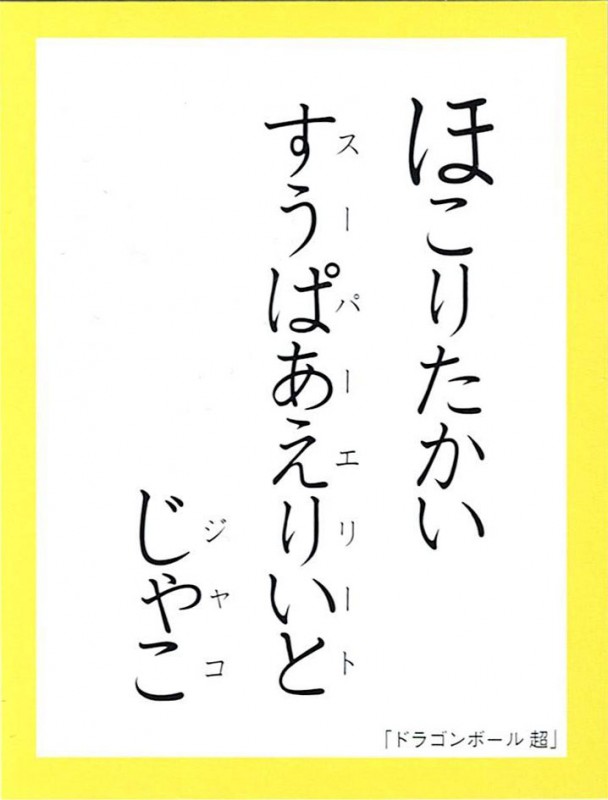 ほこりたかい
すうぱあえりいと
スーパーエリート
じゃこ
ジャコ
「ドラゴンボール 超」